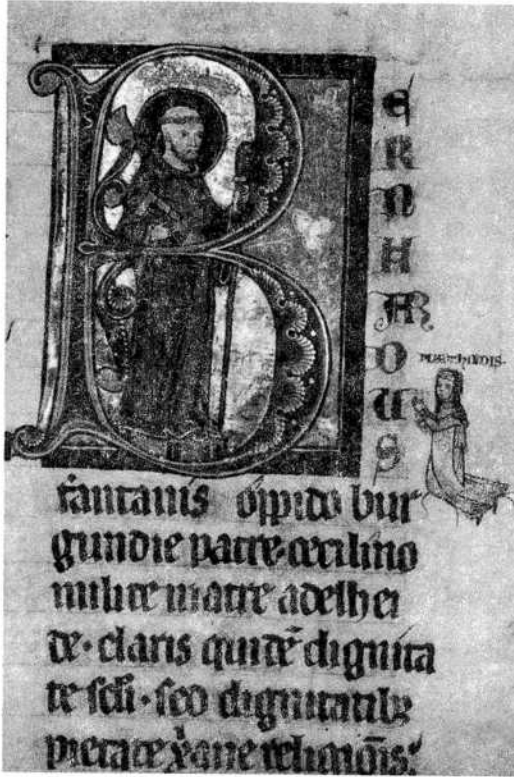 BERNHARDUS
fantanis oppido bur
gundie patre·cecilino
milite matre adelhei
de· claris quidē dignita
te scłi· sed dignitatibꝫ
pietate xane religiōis